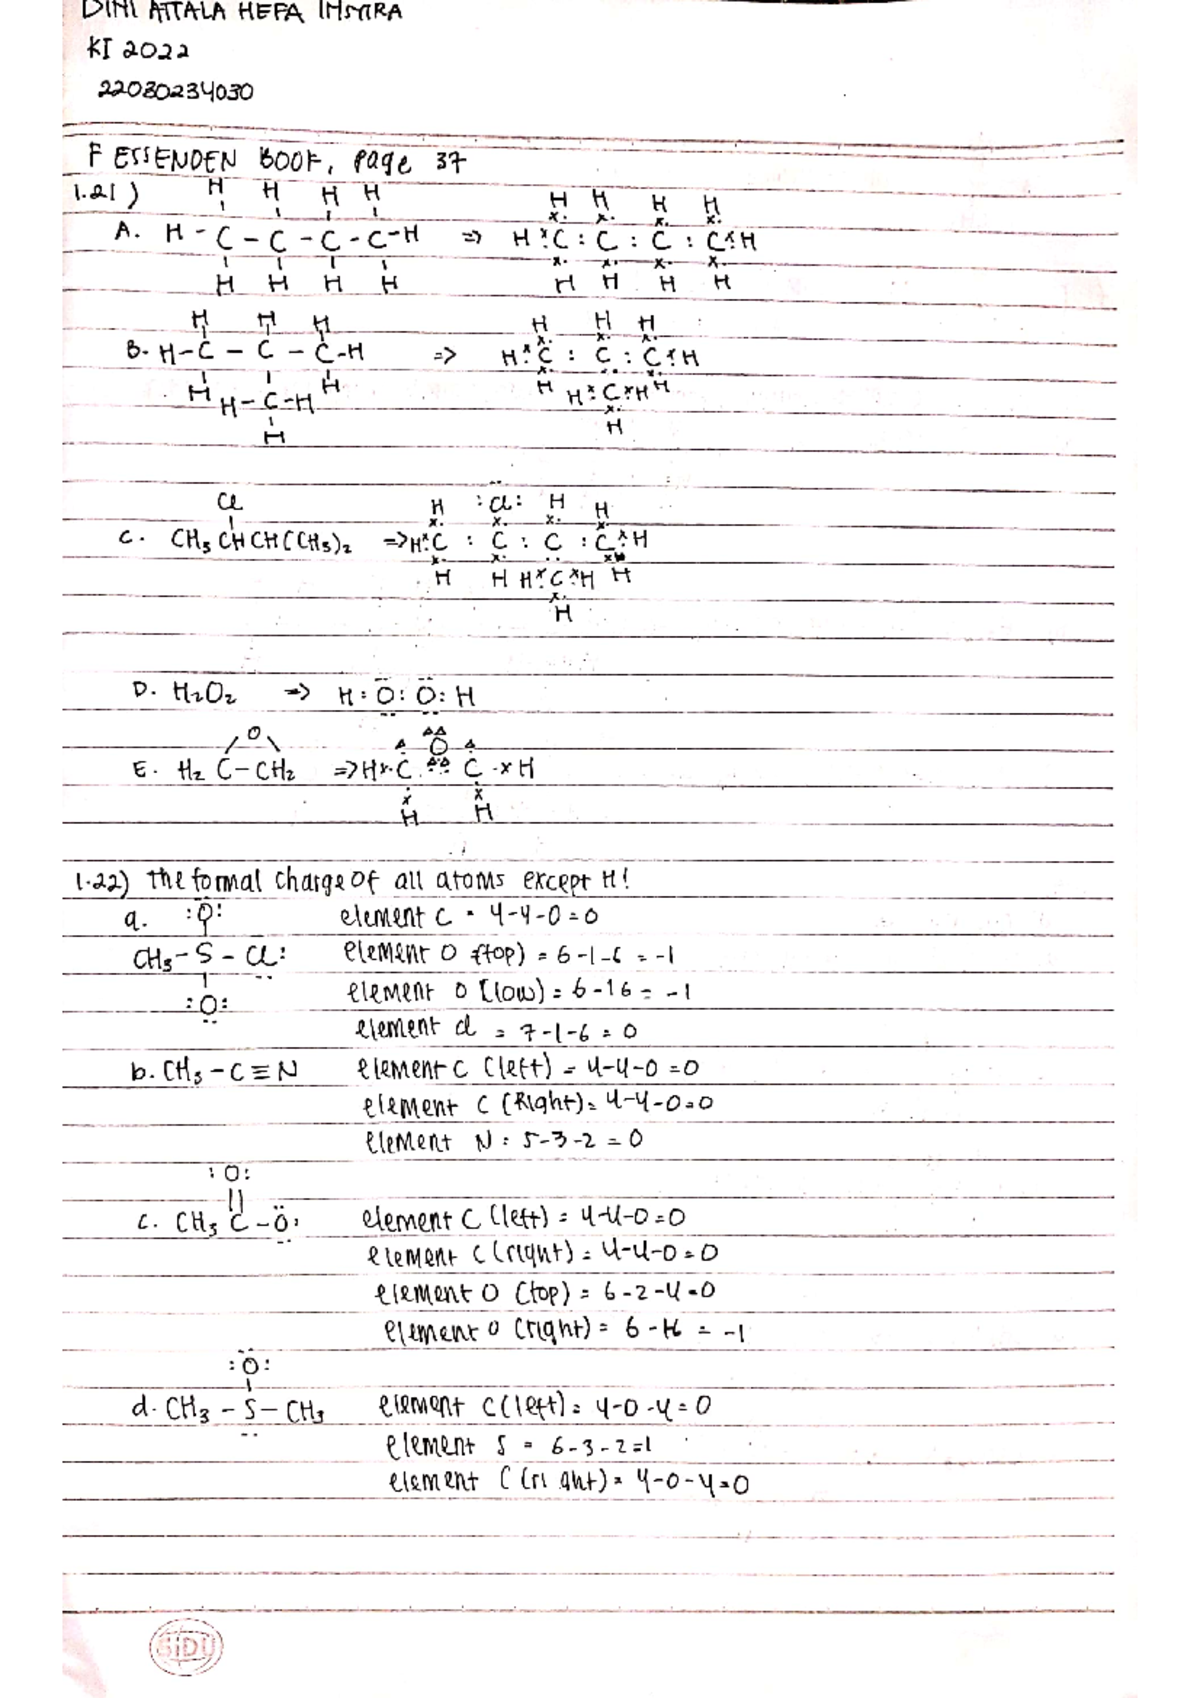 DINI ATTALA HEFA INSYIRA
KI 2022
22030234030
FESSENDEN BOOK, Page 37
1.21)
H H H H
A. H - C - C - C - C - H => H : C : C : C : C : H
H H H H
H H H
B. H - C - C - C - H => H : C : C : C : H
H H - C - H H
H
Cl
C. CH3 CH CH (CH3)2 => H : C : C : C : C : H
H H H : C : H H
H
D. H2O2 => H : O : O : H
O
E. H2 C - CH2 => H C C H
H H
1.22) the formal charge of all atoms except H!
a. :O: element C = 4-4-0 = 0
CH3 - S - Cl: element O (top) = 6-1-6 = -1
:O: element O (low) = 6-16 = -1
element cl = 7-1-6 = 0
b. CH3 - C ≡ N element C (left) = 4-4-0 = 0
element C (Right) = 4-4-0 = 0
element N = 5-3-2 = 0
:O:
c. CH3 C - O: element C (left) = 4-4-0 = 0
element C (right) = 4-4-0 = 0
element O (top) = 6-2-4 = 0
element O (right) = 6-16 = -1
:O:
d. CH3 - S - CH3 element C (left) = 4-0-4 = 0
element S = 6-3-2 = 1
element C (right) = 4-0-4 = 0
SiDU